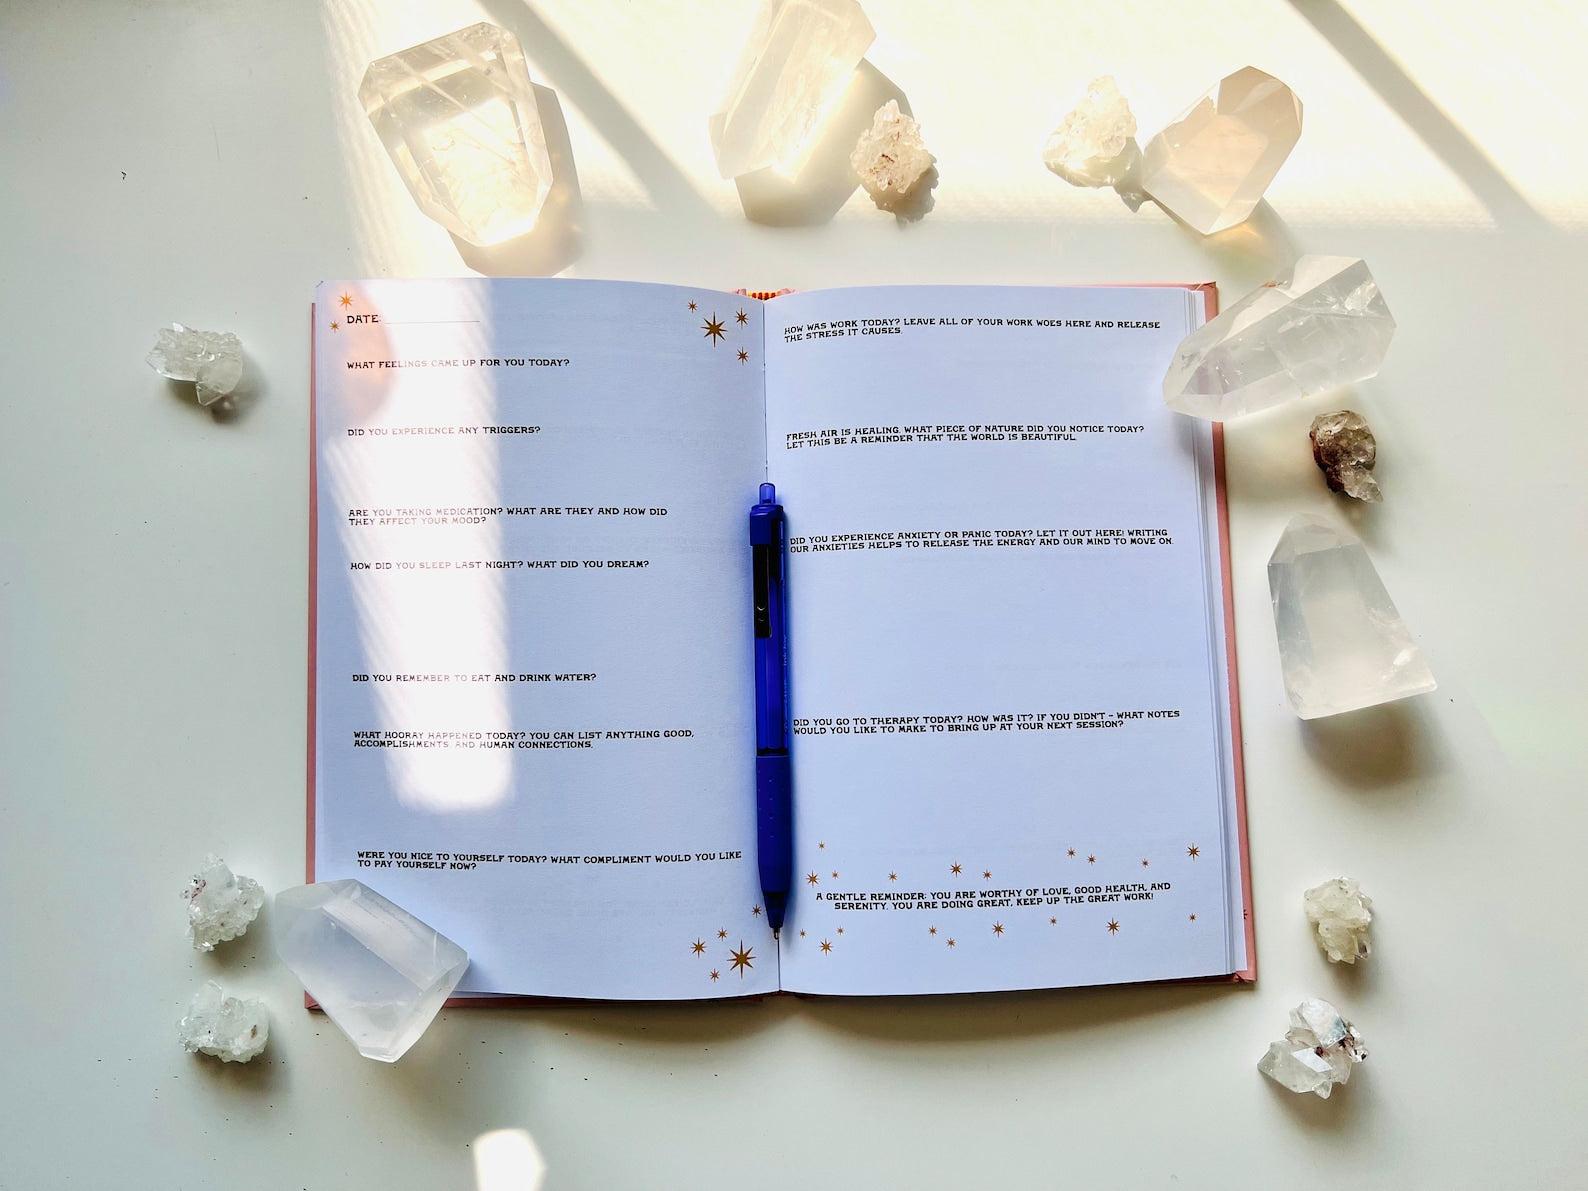 DATE:
WHAT FEELINGS CAME UP FOR YOU TODAY?
DID YOU EXPERIENCE ANY TRIGGERS?
ARE YOU TAKING MEDICATION? WHAT ARE THEY AND HOW DID
THEY AFFECT YOUR MOOD?
HOW DID YOU SLEEP LAST NIGHT? WHAT DID YOU DREAM?
DID YOU REMEMBER TO EAT AND DRINK WATER?
WHAT HOORAY HAPPENED TODAY? YOU CAN LIST ANYTHING GOOD,
ACCOMPLISHMENTS, AND HUMAN CONNECTIONS.
WERE YOU NICE TO YOURSELF TODAY? WHAT COMPLIMENT WOULD YOU LIKE
TO PAY YOURSELF NOW?
HOW WAS WORK TODAY? LEAVE ALL OF YOUR WORK WOES HERE AND RELEASE
THE STRESS IT CAUSES.
FRESH AIR IS HEALING. WHAT PIECE OF NATURE DID YOU NOTICE TODAY?
LET THIS BE A REMINDER THAT THE WORLD IS BEAUTIFUL.
DID YOU EXPERIENCE ANXIETY OR PANIC TODAY? LET IT OUT HERE! WRITING
OUR ANXIETIES HELPS TO RELEASE THE ENERGY AND OUR MIND TO MOVE ON.
DID YOU GO TO THERAPY TODAY? HOW WAS IT? IF YOU DIDN'T - WHAT NOTES
WOULD YOU LIKE TO MAKE TO BRING UP AT YOUR NEXT SESSION?
A GENTLE REMINDER: YOU ARE WORTHY OF LOVE, GOOD HEALTH, AND
SERENITY. YOU ARE DOING GREAT, KEEP UP THE GREAT WORK!